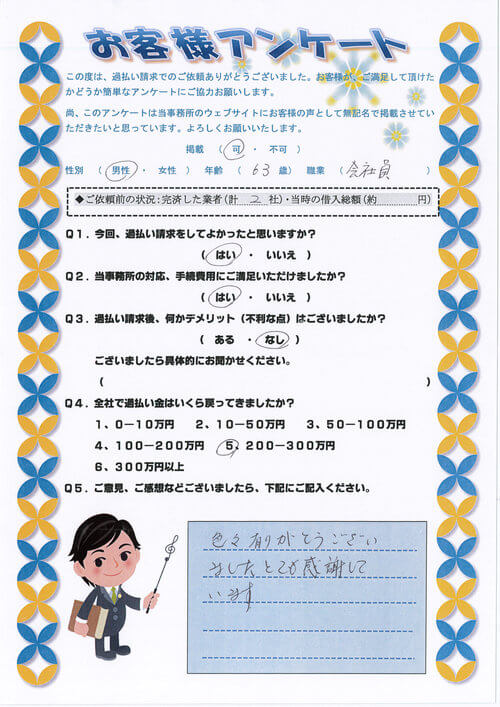 お客様アンケート
この度は、過払い請求でのご依頼ありがとうございました。お客様が、ご満足して頂けた
かどうか簡単なアンケートにご協力お願いします。
尚、このアンケートは当事務所のウェブサイトにお客様の声として無記名で掲載させてい
ただきたいと思っています。よろしくお願いいたします。
掲載 ( 可 ・ 不可 )
性別 ( 男性 ・ 女性 ) 年齢 ( 63 歳) 職業 ( 会社員 )
◆ご依頼前の状況:完済した業者(計 2 社)・当時の借入総額(約 円)
Q1.今回、過払い請求をしてよかったと思いますか?
( はい ・ いいえ )
Q2.当事務所の対応、手続費用にご満足いただけましたか?
( はい ・ いいえ )
Q3.過払い請求後、何かデメリット(不利な点)はございましたか?
( ある ・ なし )
ございましたら具体的にお聞かせください。
( )
Q4.全社で過払い金はいくら戻ってきましたか?
1、0-10万円 2、10-50万円 3、50-100万円
4、100-200万円 5、200-300万円
6、300万円以上
Q5.ご意見、ご感想などございましたら、下記にご記入ください。
色々有りがとうござい
ましたとても感謝して
います